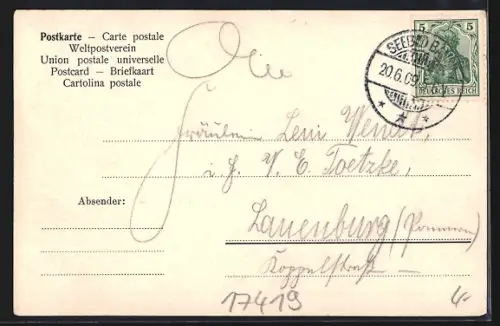 Postkarte – Carte postale
Weltpostverein
Union postale universelle
Postcard – Briefkaart
Cartolina postale
5 5
DEUTSCHES REICH
SEEBAD
20.6.09
Fräulein Leni
i. H. V. E. Toetzke,
Absender:
Lauenburg (Pommern
Koppelstraß
17419